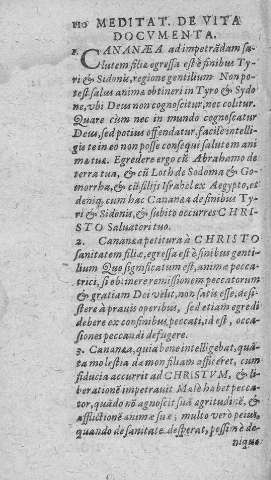 110 MEDITAT. DE VITA
DOCVMENTA.
1. CANANÆA ad impetrãdam sa-
lutem filiæ egressa est è finibus Ty-
ri & Sidonis, regione gentilium Non po-
test salus anima obtineri in Tyro & Sydo-
ne, vbi Deus non cognoscitur, nec colitur.
Quare cum nec in mundo cognoscatur
Deus, sed potius offendatur, facilè intelli-
gis te in eo non posse consequi salutem ani
mæ tuæ. Egredere ergo cũ Abrahamo de
terra tua, & cũ Loth de Sodoma & Go-
morrha, & cũ filijs Israhel ex Aegypto, et
deniq, cum hac Cananea de finibus Ty-
ri & Sidonis, & subito occurres CHRI-
STO Saluatori tuo.
2. Cananea petitura à CHRISTO
sanitatem filiæ, egressa est è finibus genti-
lium Quo significatum est, anima pecca-
trici, si obtinere remissionem peccatorum
& gratiam Dei velit, non satis esse, desi-
stere à prauis operibus, sed etiam egredi
debere ex confinibus peccati, id est, occa-
siones peccandi defugere.
3. Cananea, quia bene intelligebat, quã-
ta molestia dæmon filiam afficeret, cum
fiducia accurrit ad CHRISTVM, & li-
berationẽ impetrauit Malè habet pecca-
tor, quãdo nõ agnoscit suã ægritudinẽ, &
afflictionẽ animæ suæ; multo verò peius,
quando de sanitate desperat, pessimè de-
nique